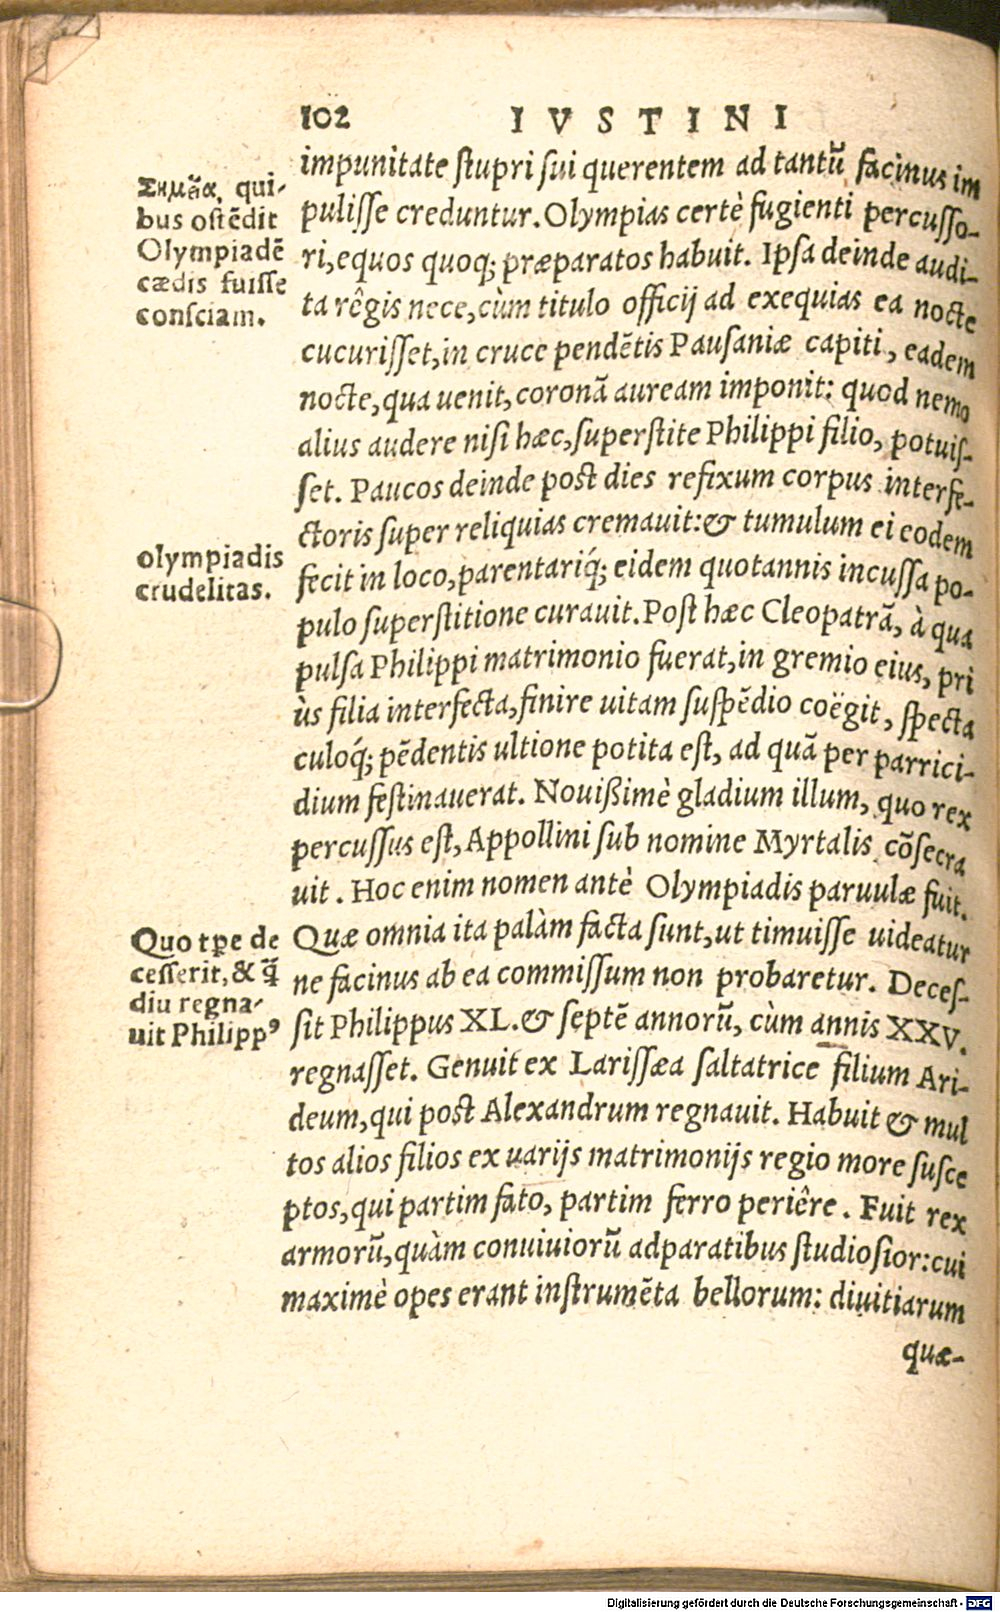 102 IVSTINI
impunitate stupri sui querentem ad tantũ facinus im
pulisse creduntur. Olympias certè fugienti percusso-
ri, equos quoq; præparatos habuit. Ipsa deinde audi-
ta rêgis nece, cùm titulo officij ad exequias ea nocte
cucurisset, in cruce pendẽtis Pausaniæ capiti, eadem
nocte, qua uenit, coronã auream imponit: quod nemo
alius audere nisi hæc, superstite Philippi filio, potuis-
set. Paucos deinde post dies refixum corpus interfe-
ctoris super reliquias cremauit: & tumulum ei eodem
fecit in loco, parentariq́; eidem quotannis incussa po-
pulo superstitione curauit. Post hæc Cleopatrã, à qua
pulsa Philippi matrimonio fuerat, in gremio eius, pri
ùs filia interfecta, finire uitam suspẽdio coëgit, specta
culoq́; pẽdentis ultione potita est, ad quã per parrici-
dium festinauerat. Nouißimè gladium illum, quo rex
percussus est, Appollini sub nomine Myrtalis cõsecra
uit. Hoc enim nomen antè Olympiadis paruulæ fuit.
Quæ omnia ita palàm facta sunt, ut timuisse uideatur
ne facinus ab ea commissum non probaretur. Deces-
sit Philippus XL. & septẽ annorũ, cùm annis XXV.
regnasset. Genuit ex Larissæa saltatrice filium Ari-
deum, qui post Alexandrum regnauit. Habuit & mul
tos alios filios ex uarijs matrimonijs regio more susce
ptos, qui partim fato, partim ferro periêre. Fuit rex
armorũ, quàm conuiuiorũ adparatibus studiosior: cui
maximè opes erant instrumẽta bellorum: diuitiarum
quæ-
Σημεῖα, qui-
bus ostẽdit
Olympiadẽ
cædis fuisse
consciam.
olympiadis
crudelitas.
Quo tꝑe de
cesserit, & q̃
diu regna-
uit Philippꝰ
Digitalisierung gefördert durch die Deutsche Forschungsgemeinschaft - DFG